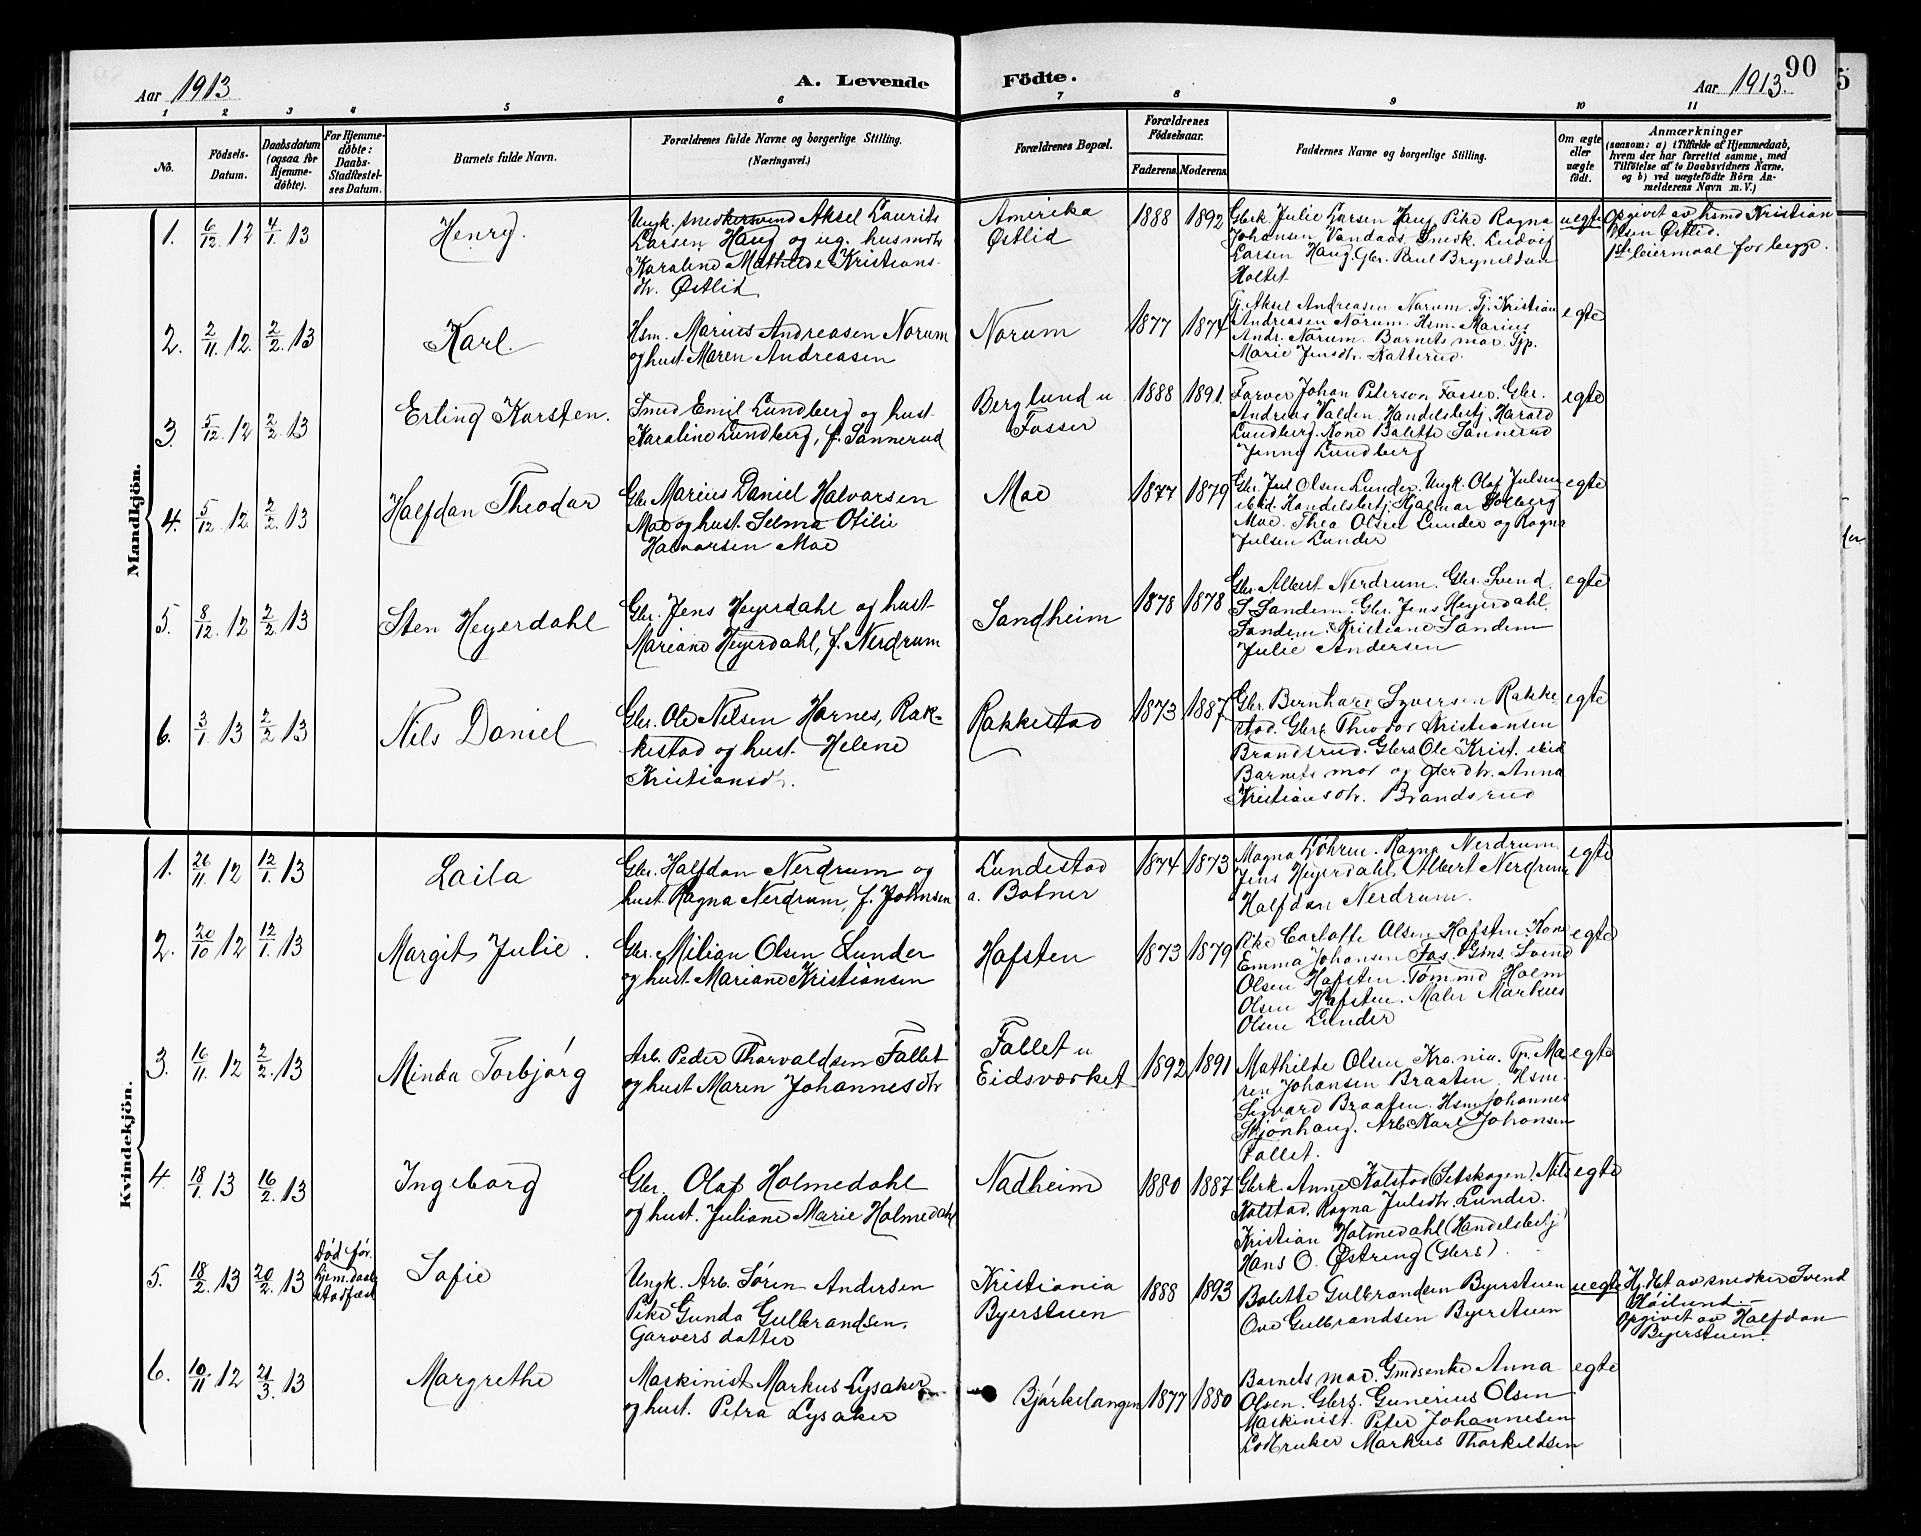 90
Aar 1913
A. Levende Födte.
Aar 1913.
1 2 3 4 5 6 7 8 9 10 11
No.
Födsels-
Datum.
Daabsdatum
(ogsaa for
Hjemme-
döbte).
For Hjemme-
döbte:
Daabs-
Stadfæstel-
ses Datum.
Barnets fulde Navn.
Forældrenes fulde Navne og borgerlige Stilling.
(Næringsvei.)
Forældrenes Bopæl.
Forældrenes
Födselsaar.
Faderens. Moderens.
Faddernes Navne og borgerlige Stilling.
Om ægte
eller
uægte
födt.
Anmærkninger
(saasom: a) i Tilfælde af Hjemmedaab,
hvem der har forrettet samme, med
Tilföielse af to Daabsvidners Navne,
og b) ved uægtefödte Börn An-
melderens Navn m. V.)
Mandkjön.
1. 6/12 12 4/1 13
Henry.
Ungk. snedkersvend Aksel Laurits
Larsen Haug og ug. husmdtr
Karoline Mathilde Kristians-
dtr. Østlid
Amerika
Østlid
1888 1892
Gbrk. Julie Larsen Haug Pike Ragna
Johansen Vandaas. Snedk. Ludvig
Larsen Haug. Gbr. Paul Brynildsen
Holtet
uegte
Opgivet av hsmd Kristian
Olsen Østlid.
1ste leiermaal for begge.
2. 2/11 12. 2/2 13
Karl.
Hsm. Marius Andreasen Norum
og hust. Maren Andreasen
Norum
1877 1874
Tj. Aksel Andreasen Norum. Tj. Kristian
Andreasen Norum. Hsm. Marius
Andr. Norum. Barnets mor. Tjp.
Marie Jensdtr. Katterud.
egte
3. 5/12 12 2/2 13
Erling Karsten.
Smed Emil Lundberg og hust.
Karoline Lundberg, f. Sannerud
Berglund u
Fosser
1888 1891
Farver Johan Peterson Fosser. Gbr.
Andreas Valden. Handelsbetj. Harald
Lundberg. Kone Bolette Sannerud
Jenny Lundberg
egte
4. 5/12 12. 2/2 13
Halfdan Theodor
Gbr. Marius Daniel Halvorsen
Moe og hust. Selma Otilie
Halvorsen Moe
Moe
1877 1879
Gbr. Jul Olsen Lunder. Ungk. Olaf Julsen
ibid. Handelsbetj. Hjalmar Solberg
Moe. Thea Olsen Lunder og Ragna
Julsen Lunder
egte
5. 8/12 12 2/2 13
Sten Heyerdahl
Gbr. Jens Heyerdahl og hust.
Mariane Heyerdahl, f. Nerdrum
Sandheim
1878 1878
Gbr. Albert Nerdrum. Gbr. Svend
S Sandem. Gbr. Jens Heyerdahl,
Sandem. Kristiane Sandem
Julie Andersen
egte
6. 3/1 13 2/2 13
Nils Daniel
Gbr. Ole Nilsen Hornes, Rak-
kestad og hust. Helene
Kristiansdr.
Rakkestad
1873 1887
Gbr. Bernhard Syversen Rakke-
stad. Gbrs Theodor Kristiansen
Brandsrud. Gbrs Ole Krist. ibid
Barnets mor og gbrdtr. Anna
Kristiansdtr. Brandsrud
egte
Kvindekjön.
1. 26/11 12 12/1 13
Laila
Gbr. Halfdan Nerdrum og
hust. Ragna Nerdrum, f. Johnsen
Lundestad
a. Botner
1874 1873
Magna Løhren. Ragna Nerdrum.
Jens Heyerdahl, Albert Nerdrum
Halfdan Nerdrum.
egte
2. 20/10 12 12/1 13
Margit Julie.
Gbr. Milian Olsen Lunder
og hust. Mariane Kristiansen
Hafsten
1873 1879
Pike Carlotte Olsen Hafsten. Kone
Emma Johansen Fos. Gms. Svend
Olsen Hafsten. Tømmd Holm
Olsen Hafsten. Maler Markus
Olsen Lunder
egte
3. 16/11 12 2/2 13
Minda Torbjørg
Arb. Peder Thorvaldsen Fallet
og hust. Maren Johannesdtr
Fallet u
Eidsværket
1892 1891
Mathilde Olsen Kra.nia. Tp. Ma-
ren Johansen Braaten. Hsm.
Sigvard Braaten. Hsm Johannes
Skjønhaug. Arb. Karl Johansen
Fallet.
egte
4. 18/1 13 16/2 13
Ingeborg
Gbr. Olaf Holmedahl
og hust. Juliane Marie Holmedahl
Nadheim
1880 1887
Gbrk. Anne Kolstad (Setskogen). Nils
Kolstad. Ragna Julsdtr. Lunder.
Kristian Holmedahl (Handelsbetj)
Hans O. Østreng (Gbrs).
egte
5. 18/2 13 20/2 13
Død før
hjem.daab
stadfæst
Sofie
Ungk. Arb. Søren Andersen
Pike Gunda Gulbrandsen,
Garvers datter
Kristiania
Byerstuen
1888 1893
Bolette Gulbrandsen Byerstuen
Ove Gulbrandsen Byerstuen
uegte
Hj.dbt av snedker Svend
Høilund.-
Opgivet av Halfdan
Byerstuen.
6. 10/11 12 21/3 13
Margrethe
Maskinist Markus Lysaker
og hust. Petra Lysaker
Bjørkelangen
1877 1880
Barnets mor. Gmdsenke Anna
Olsen. Gbrs. Gunerius Olsen
Maskinist. Peter Johannesen
Lodbruker Markus Thorkildsen
egte